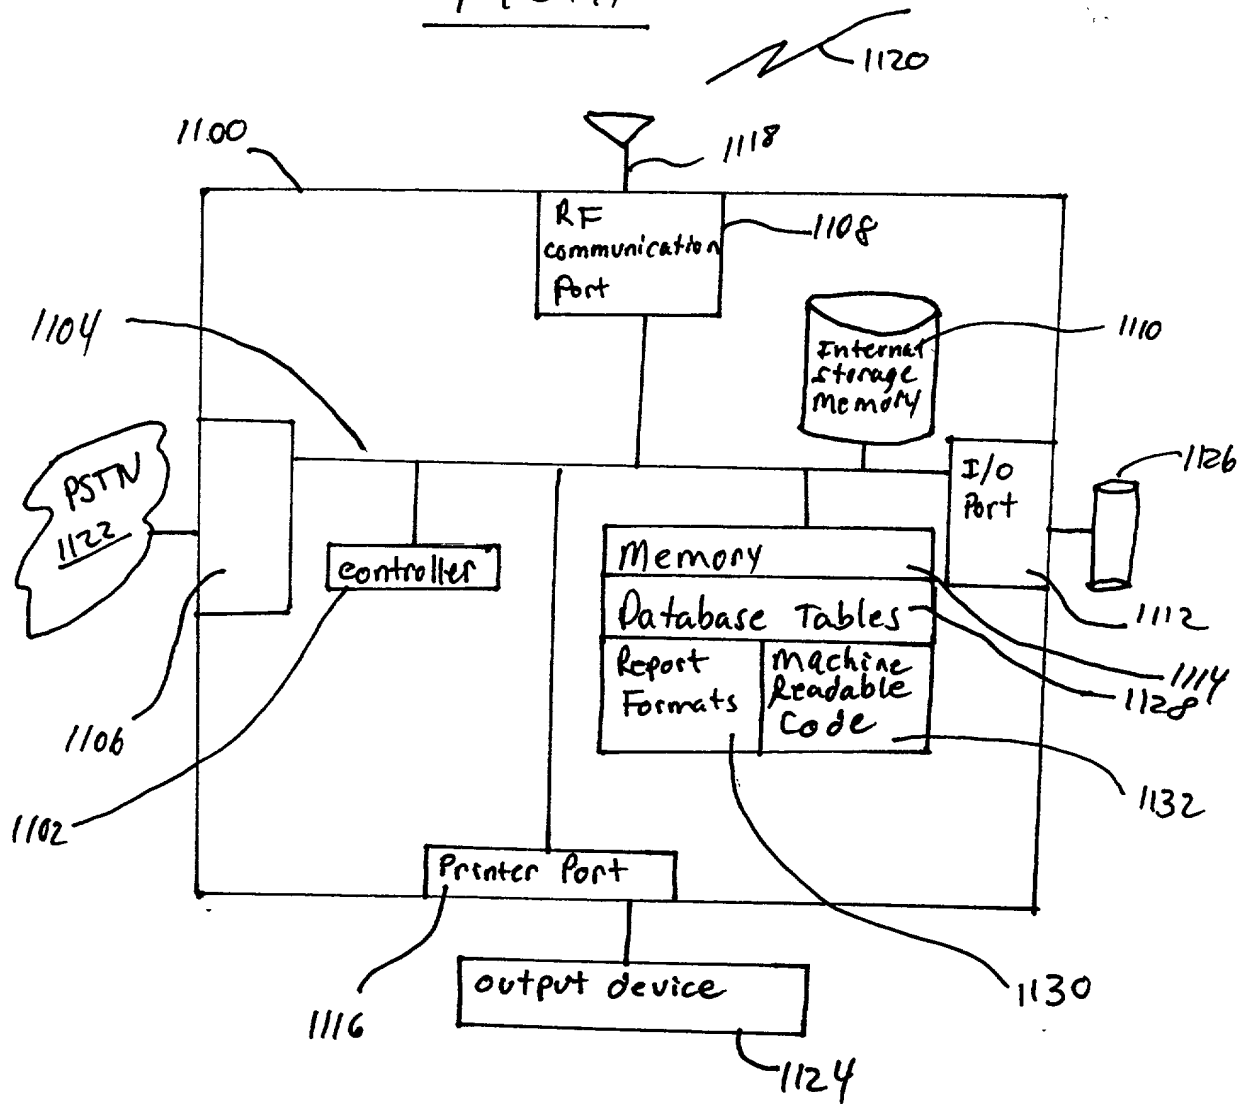 1120
1100
1118
RF
communication
Port
1108
1104
1110
Internal
storage
Memory
PSTN
1122
I/O
Port
1126
controller
Memory
Database Tables
Report
Formats
Machine
Readable
Code
1112
1114
1128
1106
1102
1132
Printer Port
output device
1116
1130
1124